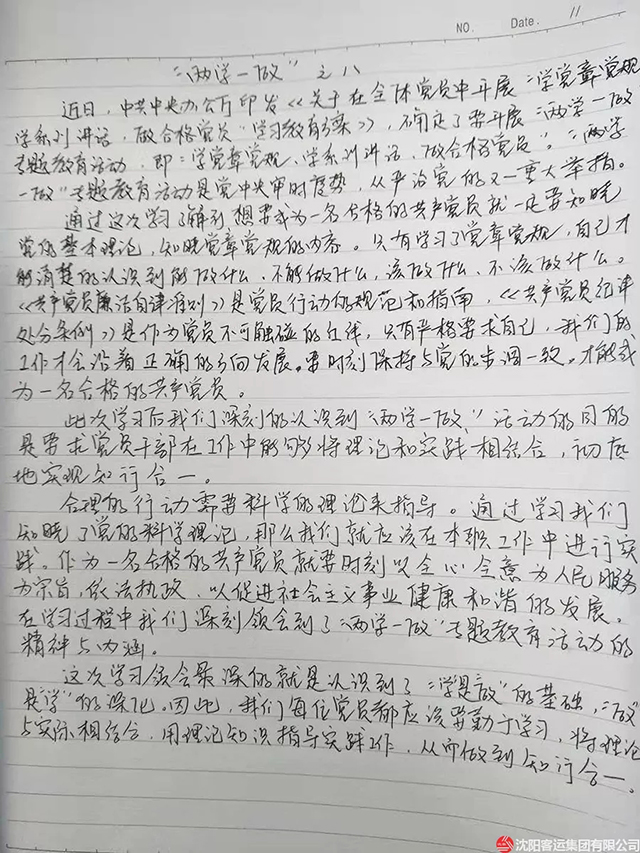 NO. Date. 11
“两学一做”之八
近日，中共中央办公厅印发《关于在全体党员中开展“学党章党规
学系列讲话，做合格党员”学习教育方案》，确定了要开展“两学一做”
专题教育活动，即：学党章党规、学系列讲话，做合格党员”。“两学
一做”专题教育活动是党中央审时度势，从严治党的又一重大举措。
通过这次学习了解到想要成为一名合格的共产党员就一定要知晓
党的基本理论，知晓党章党规的内容。只有学习了党章党规，自己才
能清楚的认识到能做什么、不能做什么，该做什么、不该做什么。
《共产党员廉洁自律准则》是党员行动的规范和指南，《共产党员纪律
处分条例》是作为党员不可触碰的红线，只有严格要求自己，我们的
工作才会沿着正确的方向发展。要时刻保持与党的步调一致。才能成
为一名合格的共产党员。
此次学习后我们深刻的认识到“两学一做”活动的目的
是要求党员干部在工作中能够将理论和实践相结合，彻底
地实现知行合一。
合理的行动需要科学的理论来指导。通过学习我们
知晓了党的科学理论，那么我们就应该在本职工作中进行实
践。作为一名合格的共产党员就要时刻以全心全意为人民服务
为宗旨，依法执政，以促进社会主义事业健康和谐的发展。
在学习过程中我们深刻领会到了“两学一做”专题教育活动的
精神与内涵。
这次学习领会最深的就是认识到了“学”是“做”的基础，“做”
是“学”的深化。因此，我们每位党员都应该要勤于学习，将理论
与实际相结合，用理论知识指导实践工作，从而做到知行合一。
沈阳客运集团有限公司